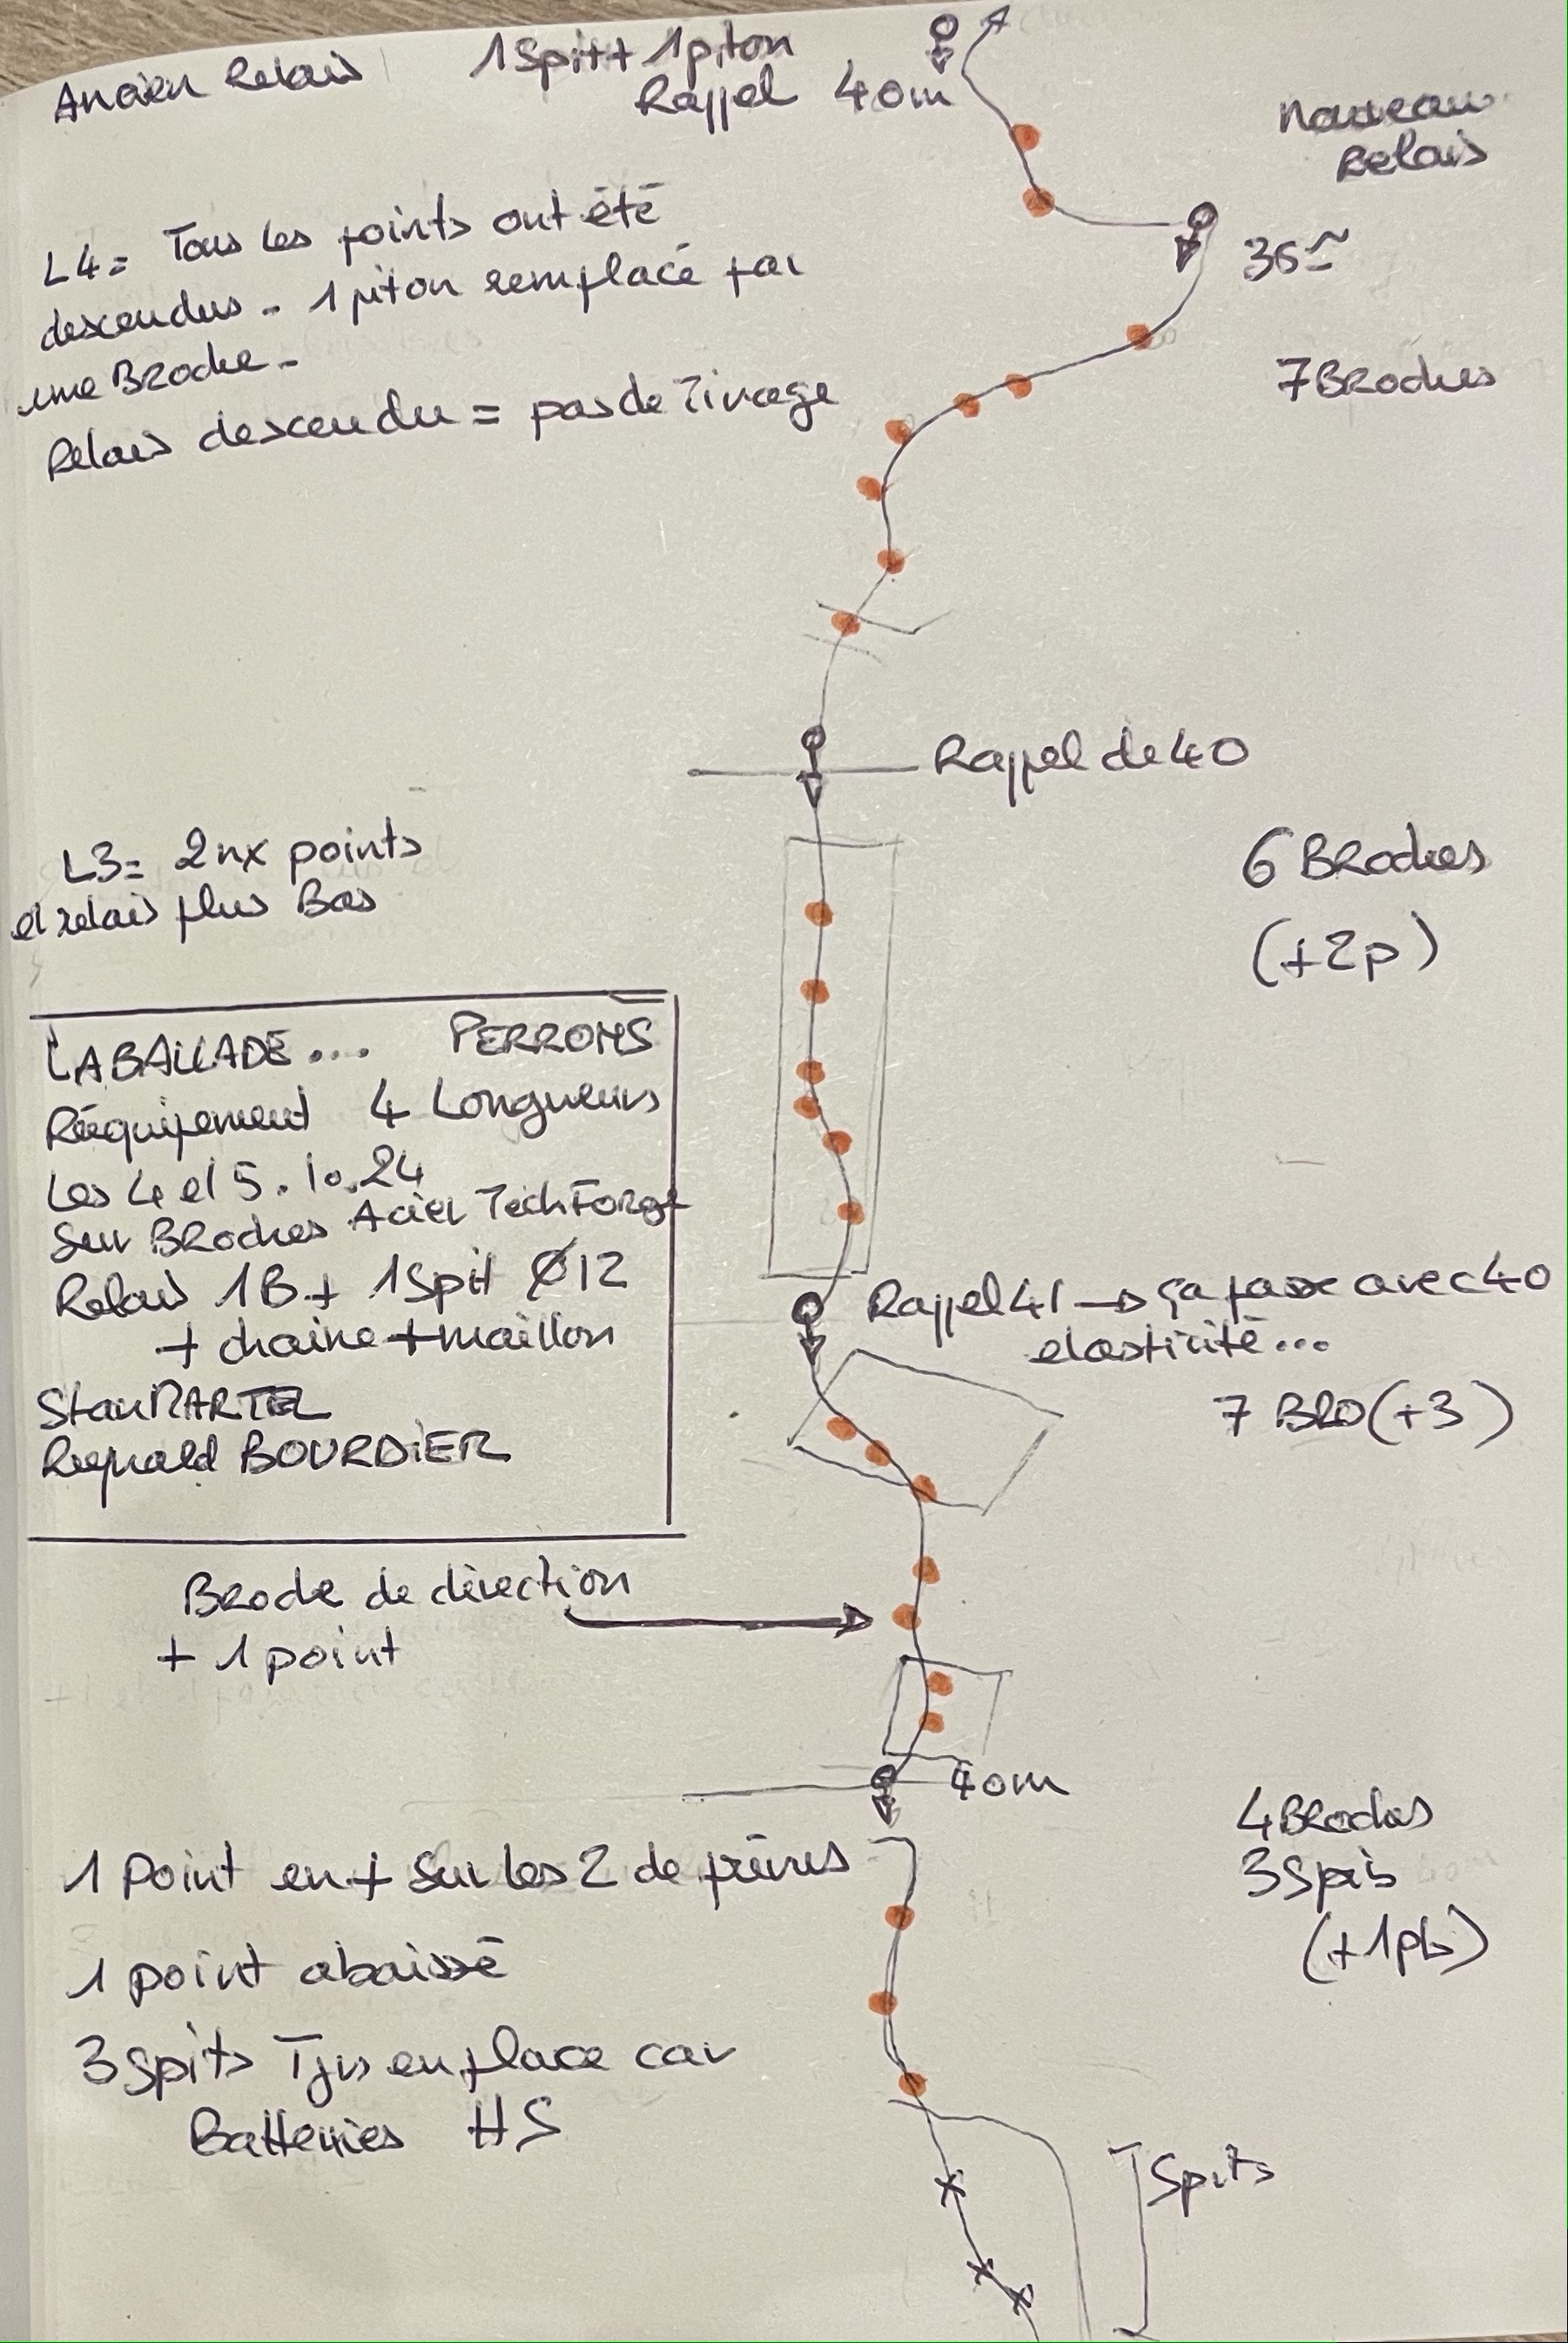 Ancien Relais
1 Spit + 1 piton
Rappel 40m
Nouveau
Relais
35m
L4 = Tous les points ont été
descendus - 1 piton remplacé par
une Broche -
Relais descendu = pas de Tirage
7 Broches
Rappel de 40
L3 = 2 nx points
et relais plus Bas
6 Broches
(+2p)
LA BALLADE... PERRONS
Rééquipement 4 Longueurs
Les 4 et 5.10.24
Sur Broches Acier TechForge
Relais 1B + 1 Spit Ø12
+ chaine + maillon
Stan MARTEL
Reynald BOURDIER
Rappel 41 → ça passe avec 40
elasticité...
7 BRO (+3)
Broche de direction
+ 1 point
40m
4 Broches
3 Spits
(+1pt)
1 Point en + Sur les 2 de
1 point abaissé
3 Spits Tjrs en place car
Batteries HS
Spits